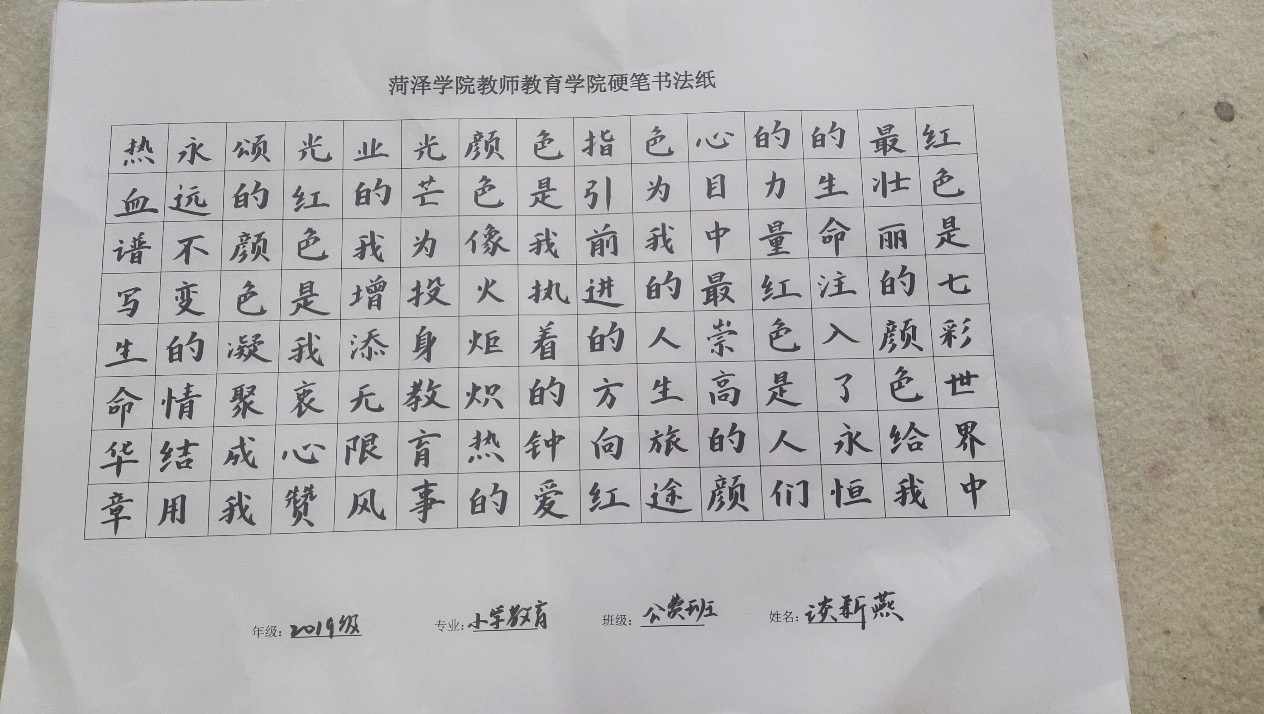 菏泽学院教师教育学院硬笔书法纸
红色是七彩世界中
最壮丽的颜色给我
的生命注入了永恒
的力量红色是人们
心目中最崇高的颜
色为我的人生旅途
指引前进的方向红
色是我执着的钟爱
颜色像火炬炽热的
光芒为投身教育事
业的我增添无限风
光红色是我衷心赞
颂的颜色凝聚成我
永远不变的情结用
热血谱写生命华章
年级:2019级 专业:小学教育 班级:公费班 姓名:谈新燕